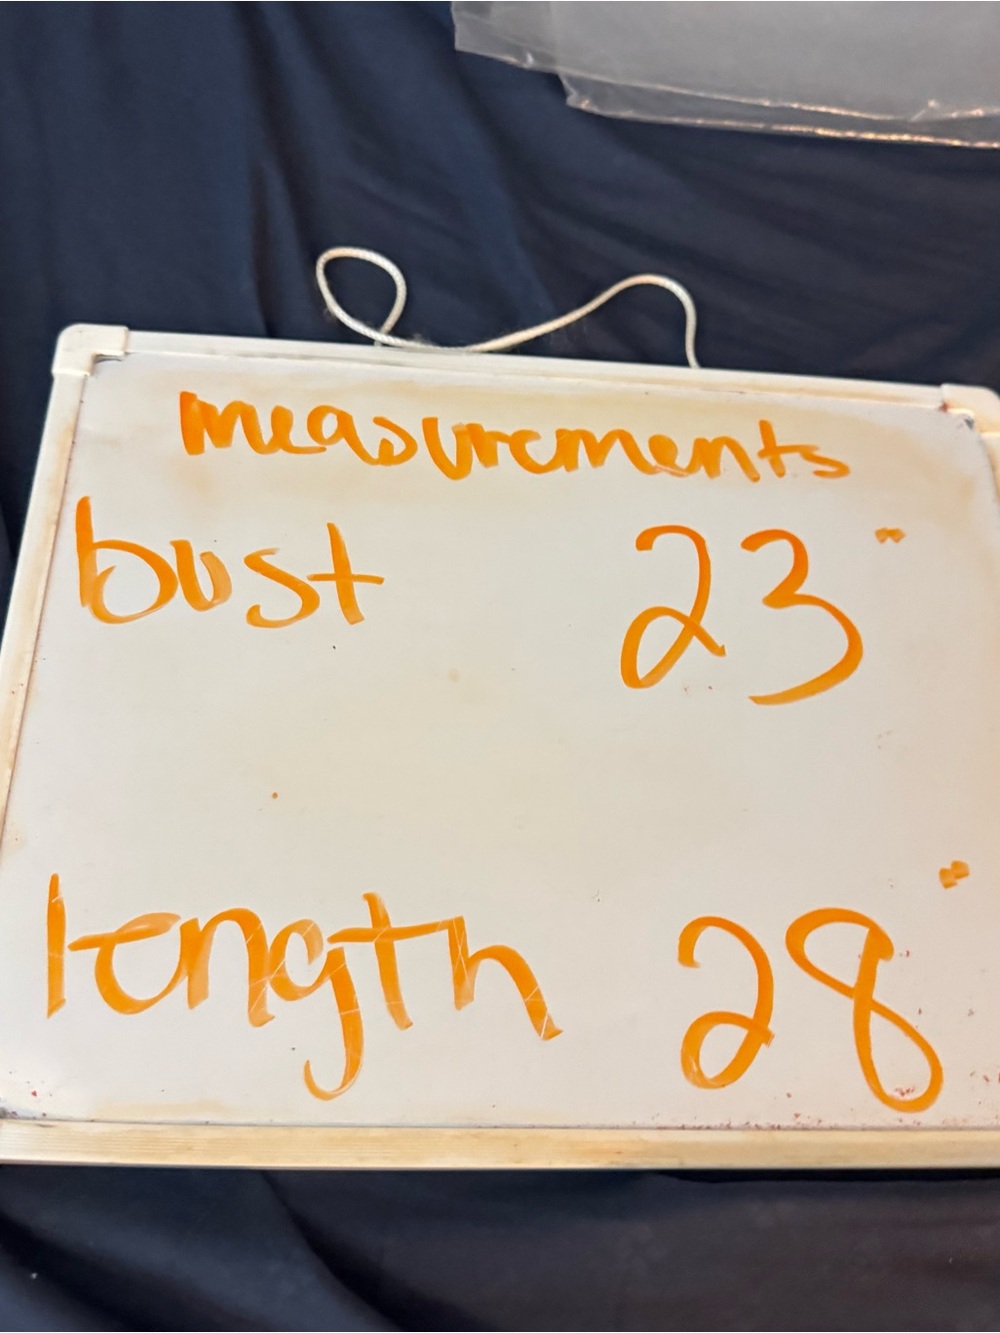 measurements
bust 23"
length 28"